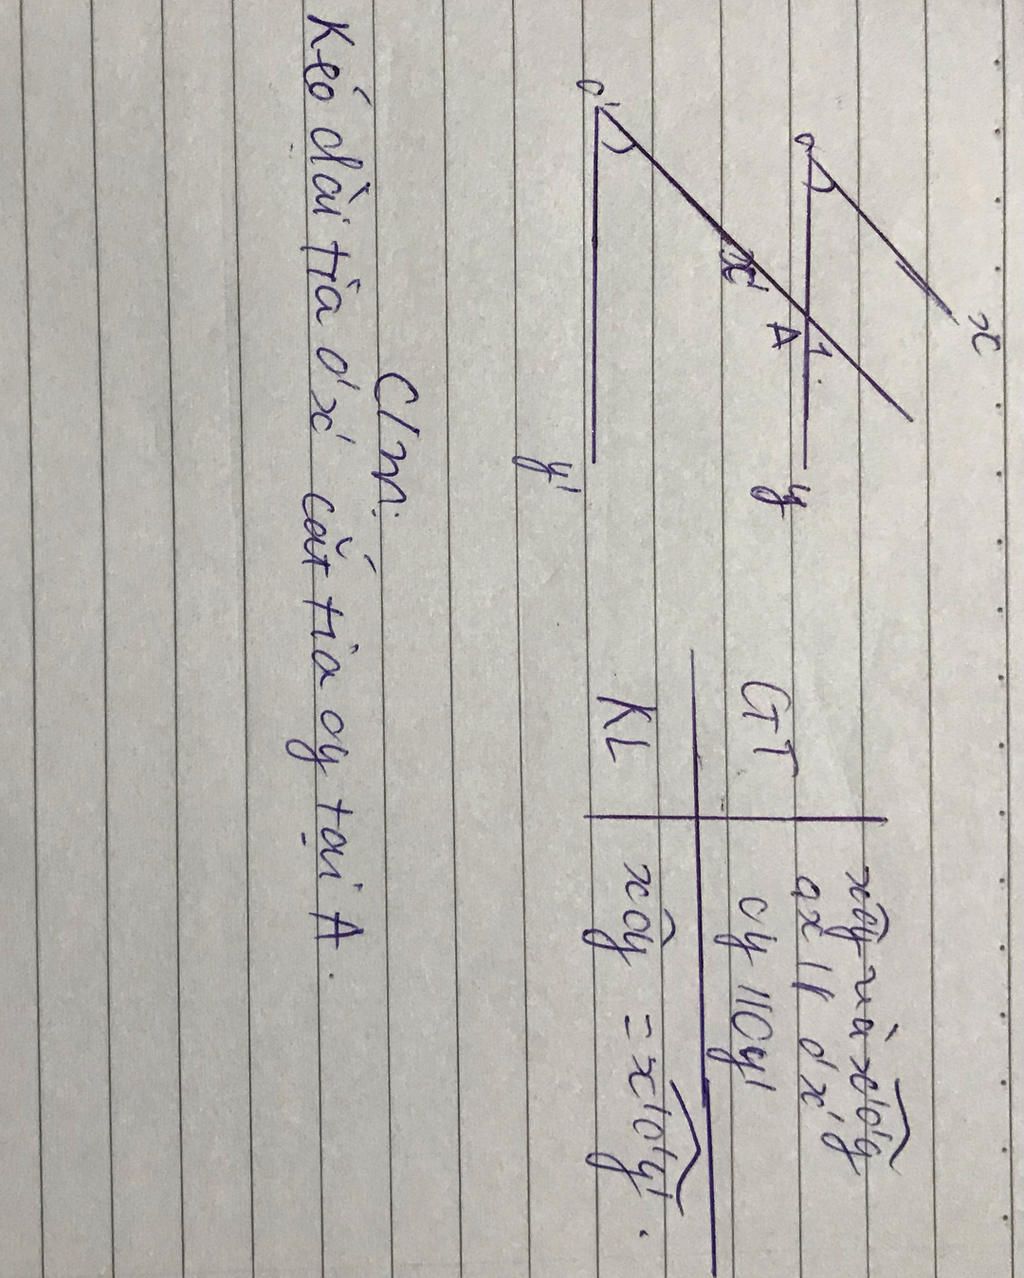 x
O
A 1
y
x'
O'
y'
GT
xÔy và x'O'y'
ox // o'x'
oy // O'y'
KL
xÔy = x'O'y'.
C/m:
Kéo dài tia o'x' cắt tia oy tại A.